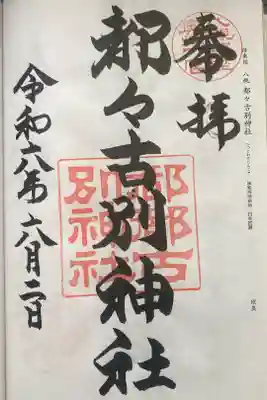 八槻 都々古別神社
奉拝
都々古別神社
都都古
別神社
令和六年六月二日